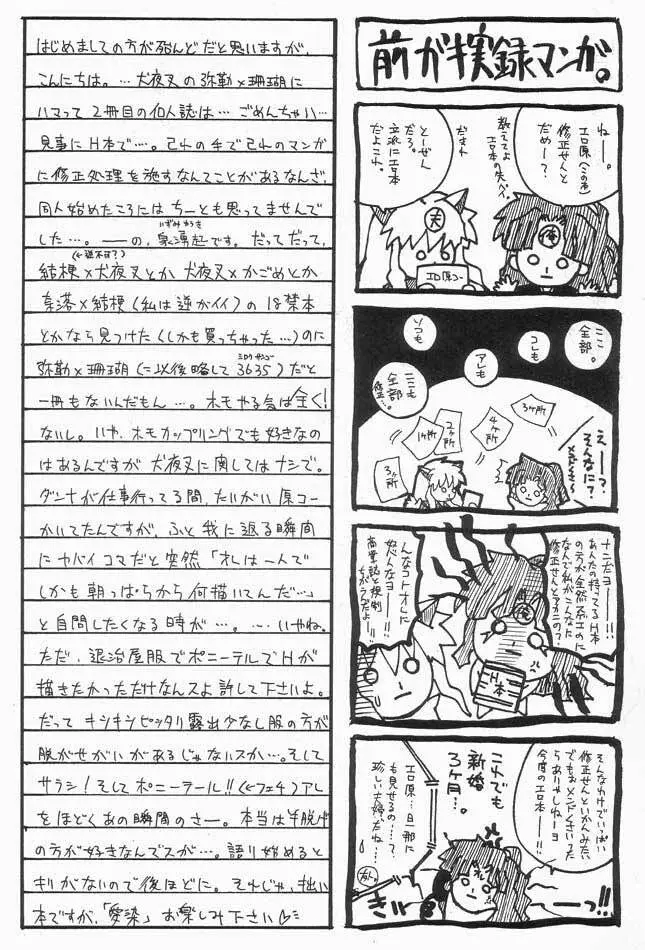 前がき実録マンガ。
ねー。
エロ原(この本)
修正せんと
だめー？
教えてよ
エロ本の先パイ。
だまれ
とーぜん
だろ。
立派にエロ本
だよコレ。
俺
夫
エロ原コー
ここ
全部。
コレも
アレも
ソコも
ここも
全部…
修正…。
3ヶ所
4ヶ所
2ヶ所
1ヶ所
3ヶ所
えーっ？
そんなに？
ナニだヨー!!
あんたの持ってるH本
の方が全然エロいのに
なんで私がこんなに
修正せんとアカンの？
んなコトオレに
怒んなヨー!!
商業誌と規制
ちがうんだよー
俺
H本
そんなわけでいっぱい
修正せんといかんみたい
でもおメンドくさいった
らありゃしねーヨ
今度のエロ本ー!!
これでも
新婚
3ヶ月…。
エロ原…旦那に
も見せるの…？
珍しい夫婦だね…。
友人
はじめましての方が殆んどだと思いますが、
こんにちは。…犬夜叉の弥勒×珊瑚に
ハマって2冊目の個人誌は…ごめんちゃい…
見事にH本で…。己れの手で己れのマンガ
に修正処理を施すなんてことがあるなんざ、
同人始めたころにはちーとも思ってませんで
した…。――の、泉湧起です。だってだって、
(←逆不可？)
桔梗×犬夜叉とか犬夜叉×かごめとか
奈落×桔梗(私は逆がイイ)の18禁本
とかなら見つけた(しかも買っちゃった…)のに
弥勒×珊瑚(に以後略して3635)だと
一冊もないんだもん…。ホモやる気は全く！
ないし。いや、ホモカップリングでも好きなの
はあるんですが犬夜叉に関してはナシで。
ダンナが仕事行ってる間、だいがい原コー
かいてたんですが、ふと我に返る瞬間
にヤバイコマだと突然「オレは一人で
しかも朝っぱらから何描いてんだ…」
と自問したくなる時が…。…いやね。
ただ、退治屋服でポニーテルでHが
描きたかっただけなんスよ許して下さいよ。
だってキシキシピッタリ露出少なし服の方が
脱がせがいがあるじゃないスか…。そして
サラシ！そしてポニーテール!!(←フェチ)アレ
をほどくあの瞬間のさー。本当は半脱げ
の方が好きなんでスが…。語り始めると
キリがないので後ほどに。それじゃ、拙い
本ですが、「愛染」お楽しみ下さい